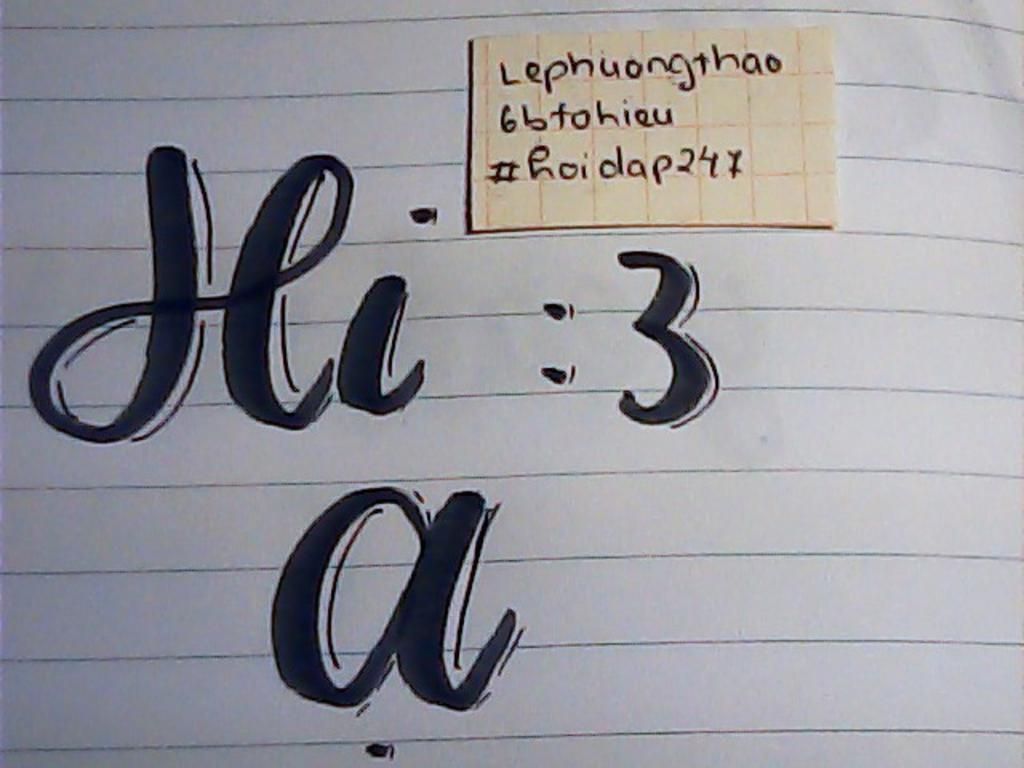 Lephuongthao
6btohieu
#hoidap247
Hi :3
ạ